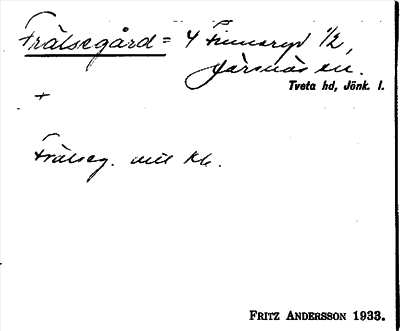 Frälsegård = 4 Finnaryd 1/2,
Järsnäs sn.
Tveta hd, Jönk. l.
+
Frälseg. vill kk.
FRITZ ANDERSSON 1933.